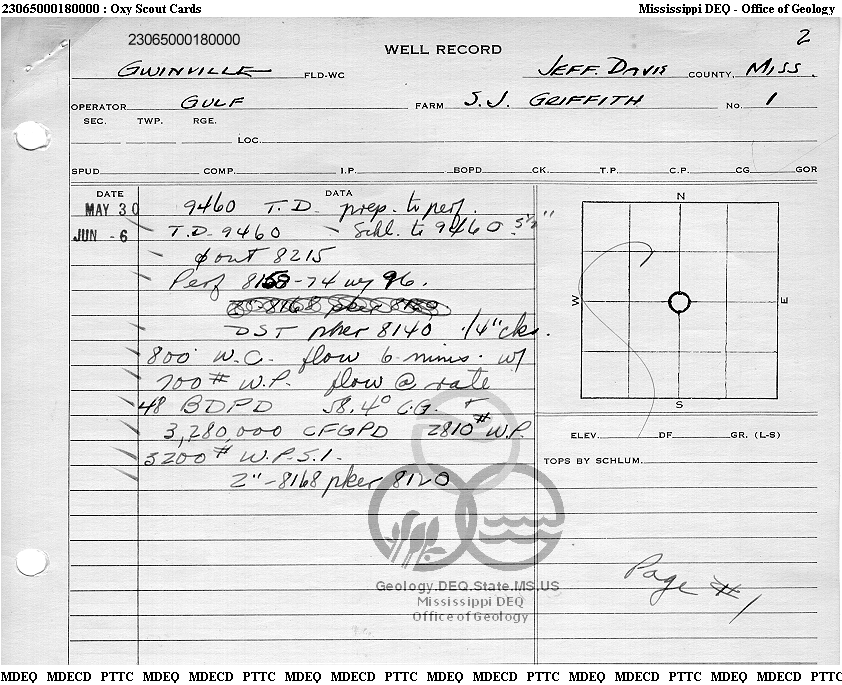 23065000180000 : Oxy Scout Cards Mississippi DEQ - Office of Geology
23065000180000 2
WELL RECORD
GWINVILLE FLD-WC JEFF. DAVIS COUNTY, MISS.
OPERATOR GULF FARM S.J. GRIFFITH No. 1
SEC. TWP. RGE.
LOC.
SPUD COMP. I.P. BOPD CK. T.P. C.P. CG GOR
DATE DATA
MAY 30 9460 T.D. prep. to perf.
JUN -6 T.D. 9460 - Schl. to 9460 5½"
φ out 8215
Perf 8158-74 w/ 96.
DST pker 8140 1/4" cks.
800' W.C. flow 6 mins. w/
700# W.P. flow @ rate
48 BDPD 58.4° C.G. +
3,280,000 CFGPD 2810# W.P.
3200# W.P.S.I.
2"-8168 pker 8120
N
W E
S
ELEV. DF. GR. (L-S)
TOPS BY SCHLUM.
Page # 1
Geology.DEQ.State.MS.US
Mississippi DEQ
Office of Geology
MDEQ MDECD PTTC MDEQ MDECD PTTC MDEQ MDECD PTTC MDEQ MDECD PTTC MDEQ MDECD PTTC MDEQ MDECD PTTC